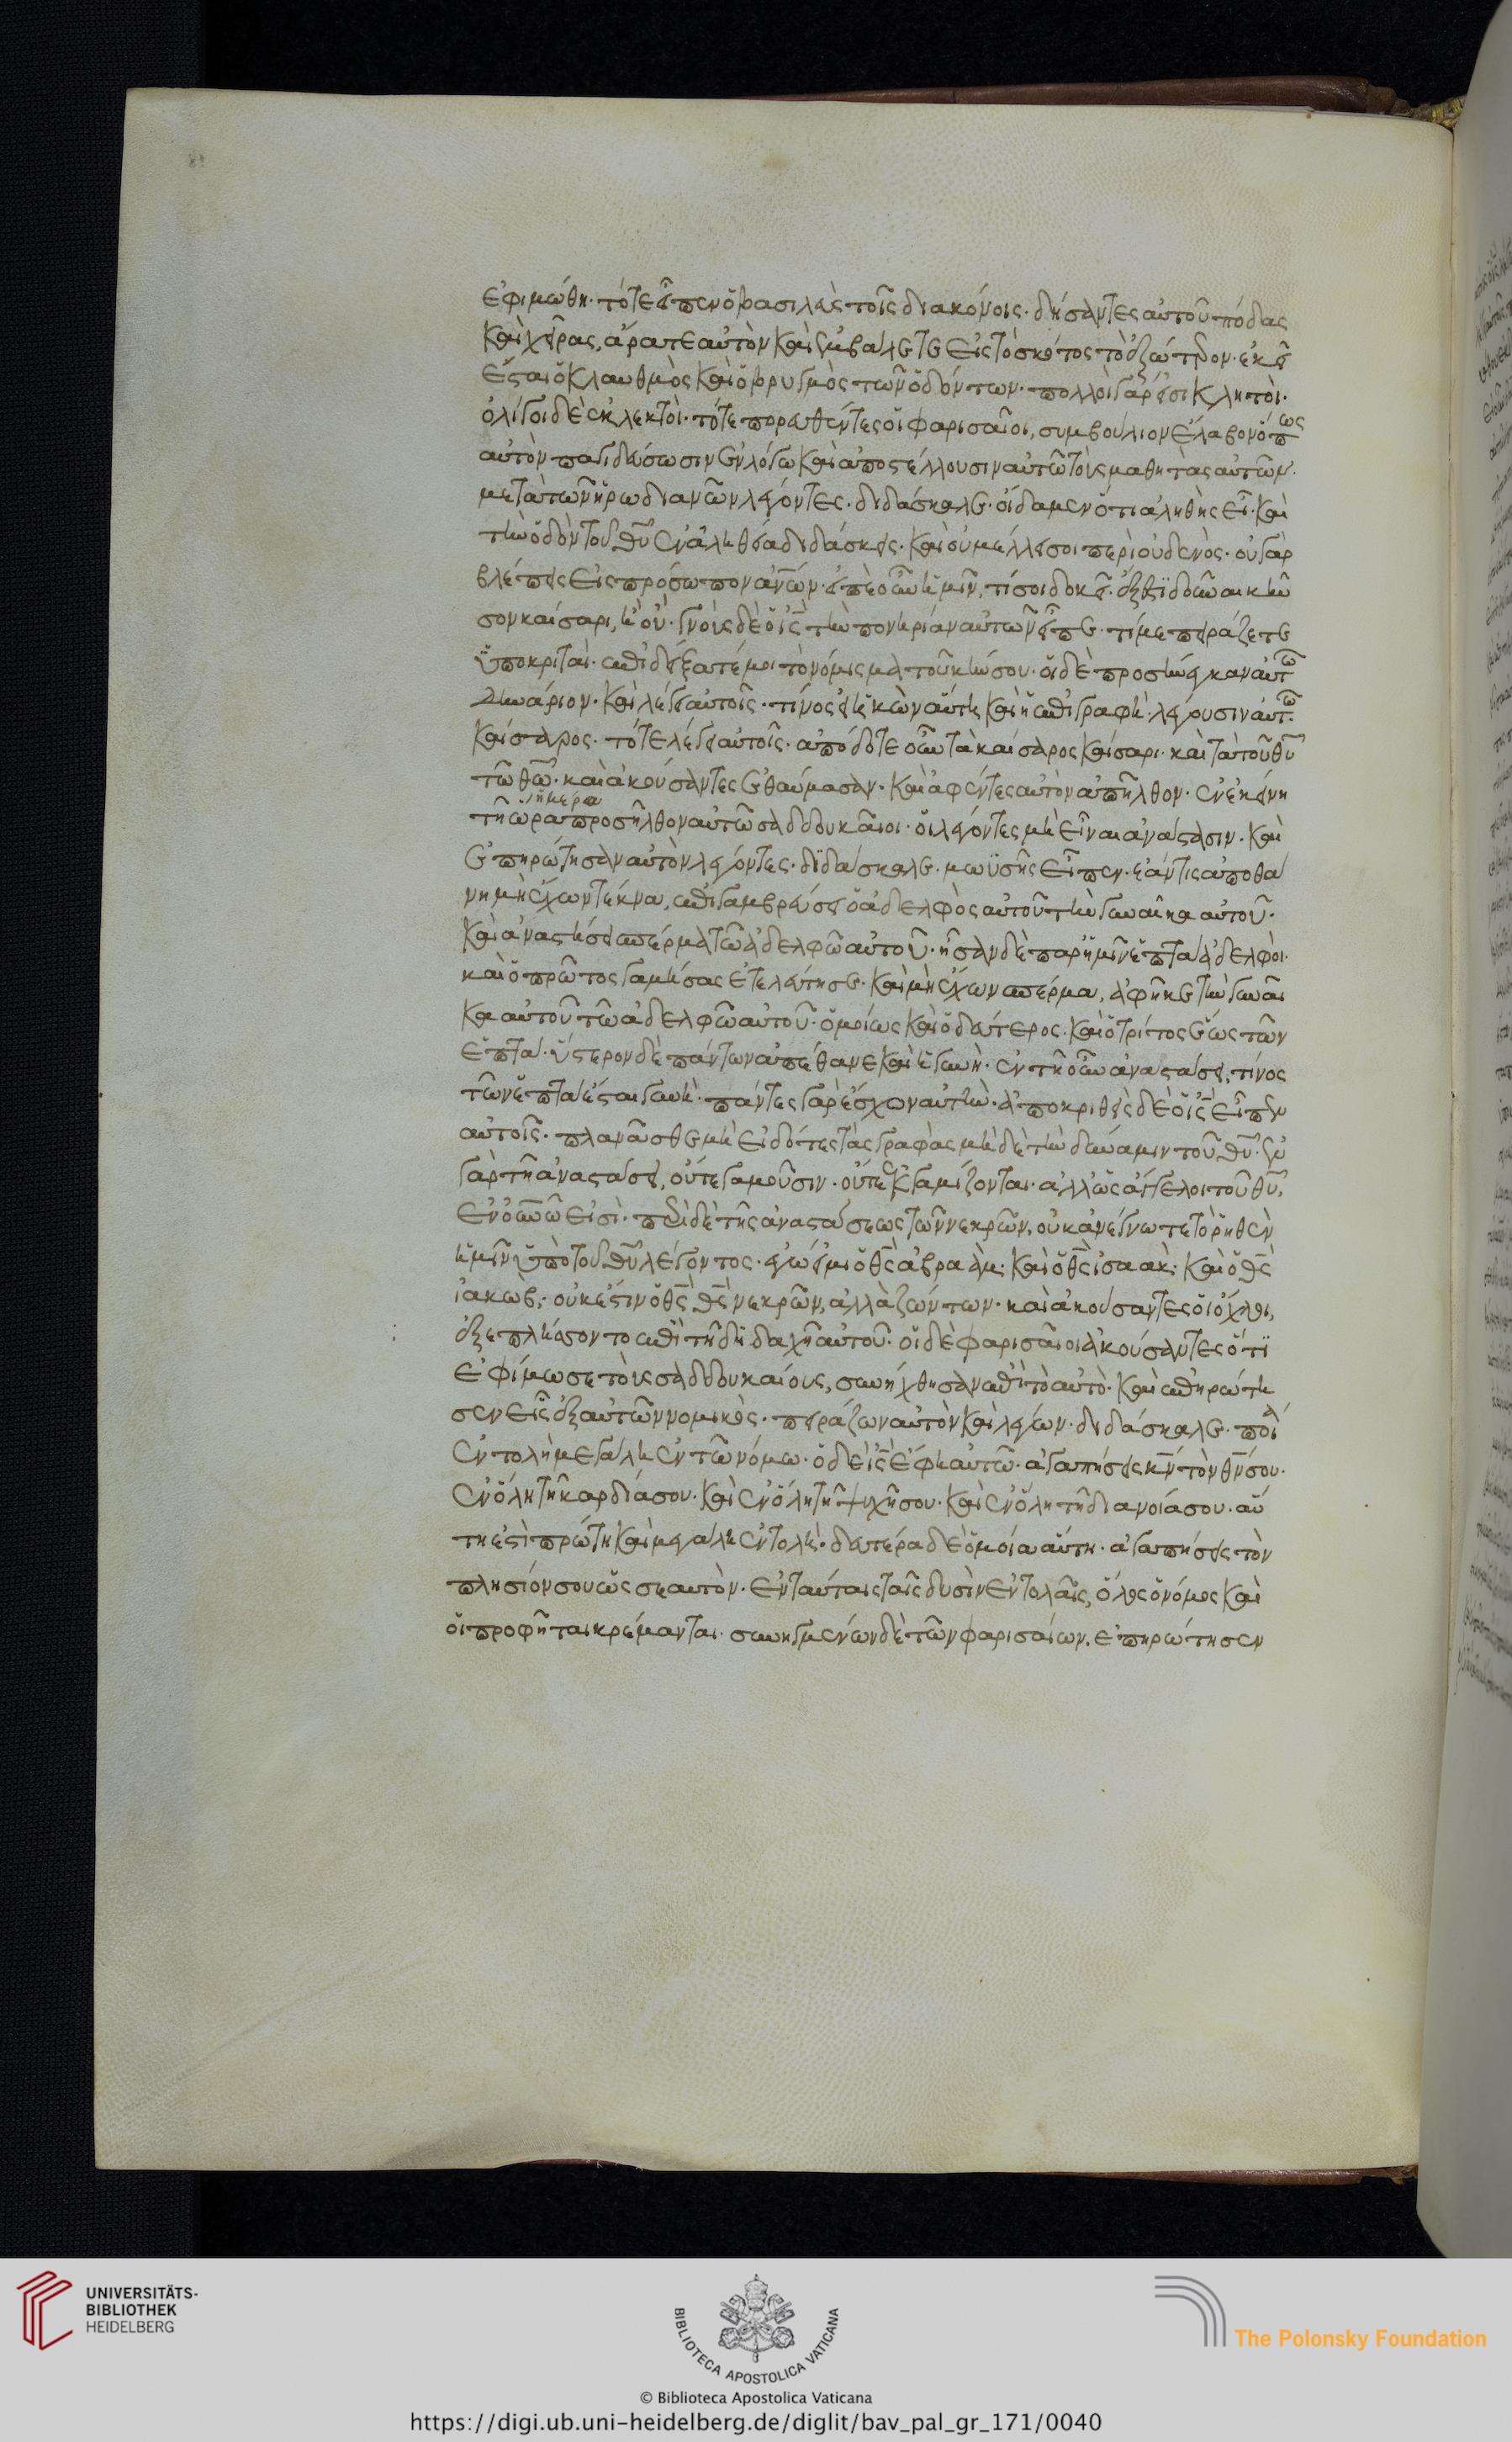 ἐφιμώθη· τότε εἶπεν ὁ βασιλεὺς τοῖς διακόνοις· δήσαντες αὐτοῦ πόδας
καὶ χεῖρας, ἄρατε αὐτὸν καὶ ἐμβάλετε εἰς τὸ σκότος τὸ ἐξώτερον· ἐκεῖ
ἔσται ὁ κλαυθμὸς καὶ ὁ βρυγμὸς τῶν ὀδόντων· πολλοὶ γάρ εἰσι κλητοὶ·
ὀλίγοι δὲ ἐκλεκτοὶ· τότε πορευθέντες οἱ φαρισαῖοι, συμβούλιον ἔλαβον ὅπως
αὐτὸν παγιδεύσωσιν ἐν λόγω καὶ ἀποστέλλουσιν αὐτῶ τοὺς μαθητὰς αὐτῶν·
μετὰ τῶν ἡρωδιανῶν λέγοντες· διδάσκαλε· οἴδαμεν ὅτι ἀληθὴς εἶ· καὶ
τὴν ὁδὸν τοῦ θυ ἐν ἀληθεία διδάσκεις· καὶ οὐ μέλλει σοι περὶ οὐδενὸς· οὐ γὰρ
βλέπεις εἰς πρόσωπον ανων· εἰπὲ οὖν ἡμῖν, τί σοι δοκεῖ· ἔξεστι δοῦναι κῆν
σον καίσαρι, ἢ οὐ· γνοὺς δὲ ὁ ις τὴν πονηρίαν αὐτῶν εἶπε· τί με πειράζετε
ὑποκριταὶ· ἐπιδείξατέ μοι τὸ νόμισμα τοῦ κήνσου· οἱ δὲ προσήνεγκαν αὐτῶ
δηνάριον· καὶ λέγει αὐτοῖς· τίνος ἡ εἰκὼν αὕτη καὶ ἡ ἐπιγραφή· λέγουσιν αὐτῶ·
καίσαρος· τότε λέγει αὐτοῖς· ἀπόδοτε οὖν τὰ καίσαρος καίσαρι· καὶ τὰ τοῦ θυ
τῶ θω· καὶ ἀκούσαντες ἐθαύμασαν· καὶ ἀφέντες αὐτὸν ἀπῆλθον· ἐν ἐκείνη
τῆ ὥρα ἡμερα προσῆλθον αὐτῶ σαδδουκαῖοι· οἱ λέγοντες μὴ εἶναι ἀνάστασιν· καὶ
ἐπηρώτησαν αὐτὸν λέγοντες· διδάσκαλε· μωϋσῆς εἶπεν· ἐάν τις ἀποθά
νη μὴ ἔχων τέκνα, ἐπιγαμβρεύσει ὁ ἀδελφὸς αὐτοῦ τὴν γυναῖκα αὐτοῦ·
καὶ ἀναστήσει σπέρμα τῶ ἀδελφῶ αὐτοῦ· ἦσαν δὲ παρ ἡμῖν ἑπτὰ ἀδελφοὶ·
καὶ ὁ πρῶτος γαμήσας ἐτελεύτησε· καὶ μὴ ἔχων σπέρμα, ἀφῆκε τὴν γυναῖ
κα αὐτοῦ τῶ ἀδελφῶ αὐτοῦ· ὁμοίως καὶ ὁ δεύτερος· καὶ ὁ τρίτος ἕως τῶν
ἑπτὰ· ὕστερον δὲ πάντων ἀπέθανε καὶ ἡ γυνὴ· ἐν τῆ οὖν ἀναστάσει, τίνος
τῶν ἑπτὰ ἔσται γυνὴ· πάντες γὰρ ἔσχον αὐτὴν· ἀποκριθεὶς δὲ ὁ ις εἶπεν
αὐτοῖς· πλανᾶσθε μὴ εἰδότες τὰς γραφὰς μὴ δὲ τὴν δύναμιν τοῦ θυ· ἐν
γὰρ τῆ ἀναστάσει, οὔτε γαμοῦσιν· οὔτε ἐκγαμίζονται· ἀλλ ὡς ἄγγελοι τοῦ θυ,
ἐν ουνω εἰσὶ· περὶ δὲ τῆς ἀναστάσεως τῶν νεκρῶν, οὐκ ἀνέγνωτε τὸ ῥηθὲν
ἡμῖν ὑπὸ τοῦ θυ λέγοντος· ἐγώ εἰμι ὁ θς ἀβραὰμ· καὶ ὁ θς ἰσαὰκ· καὶ ὁ θς
ἰακώβ· οὐκ ἔστιν ὁ θς θς νεκρῶν, ἀλλὰ ζώντων· καὶ ἀκούσαντες οἱ ὄχλοι,
ἐξεπλήσσοντο ἐπὶ τῆ διδαχῆ αὐτοῦ· οἱ δὲ φαρισαῖοι ἀκούσαντες ὅτι
ἐφίμωσε τοὺς σαδδουκαίους, συνήχθησαν ἐπὶ τὸ αὐτὸ· καὶ ἐπηρώτη
σεν εἷς ἐξ αὐτῶν νομικὸς· πειράζων αὐτὸν καὶ λέγων· διδάσκαλε· ποία
ἐντολὴ μεγάλη ἐν τῶ νόμω· ὁ δὲ ις ἔφη αὐτῶ· ἀγαπήσεις κν τὸν θν σου·
ἐν ὅλη τῆ καρδία σου· καὶ ἐν ὅλη τῆ ψυχῆ σου· καὶ ἐν ὅλη τῆ διανοία σου· αὕ
τη ἐστὶ πρώτη καὶ μεγάλη ἐντολὴ· δευτέρα δὲ ὁμοία αὕτη· ἀγαπήσεις τὸν
πλησίον σου ὡς σεαυτὸν· ἐν ταύταις ταῖς δυσὶν ἐντολαῖς, ὅλος ὁ νόμος καὶ
οἱ προφῆται κρέμανται· συνηγμένων δὲ τῶν φαρισαίων, ἐπηρώτησεν
UNIVERSITÄTS-
BIBLIOTHEK
HEIDELBERG
BIBLIOTECA APOSTOLICA VATICANA
© Biblioteca Apostolica Vaticana
The Polonsky Foundation
https://digi.ub.uni-heidelberg.de/diglit/bav_pal_gr_171/0040